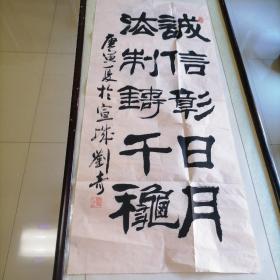 誠信彰日月
法制鑄千龝
庚寅夏於宣城劉奇